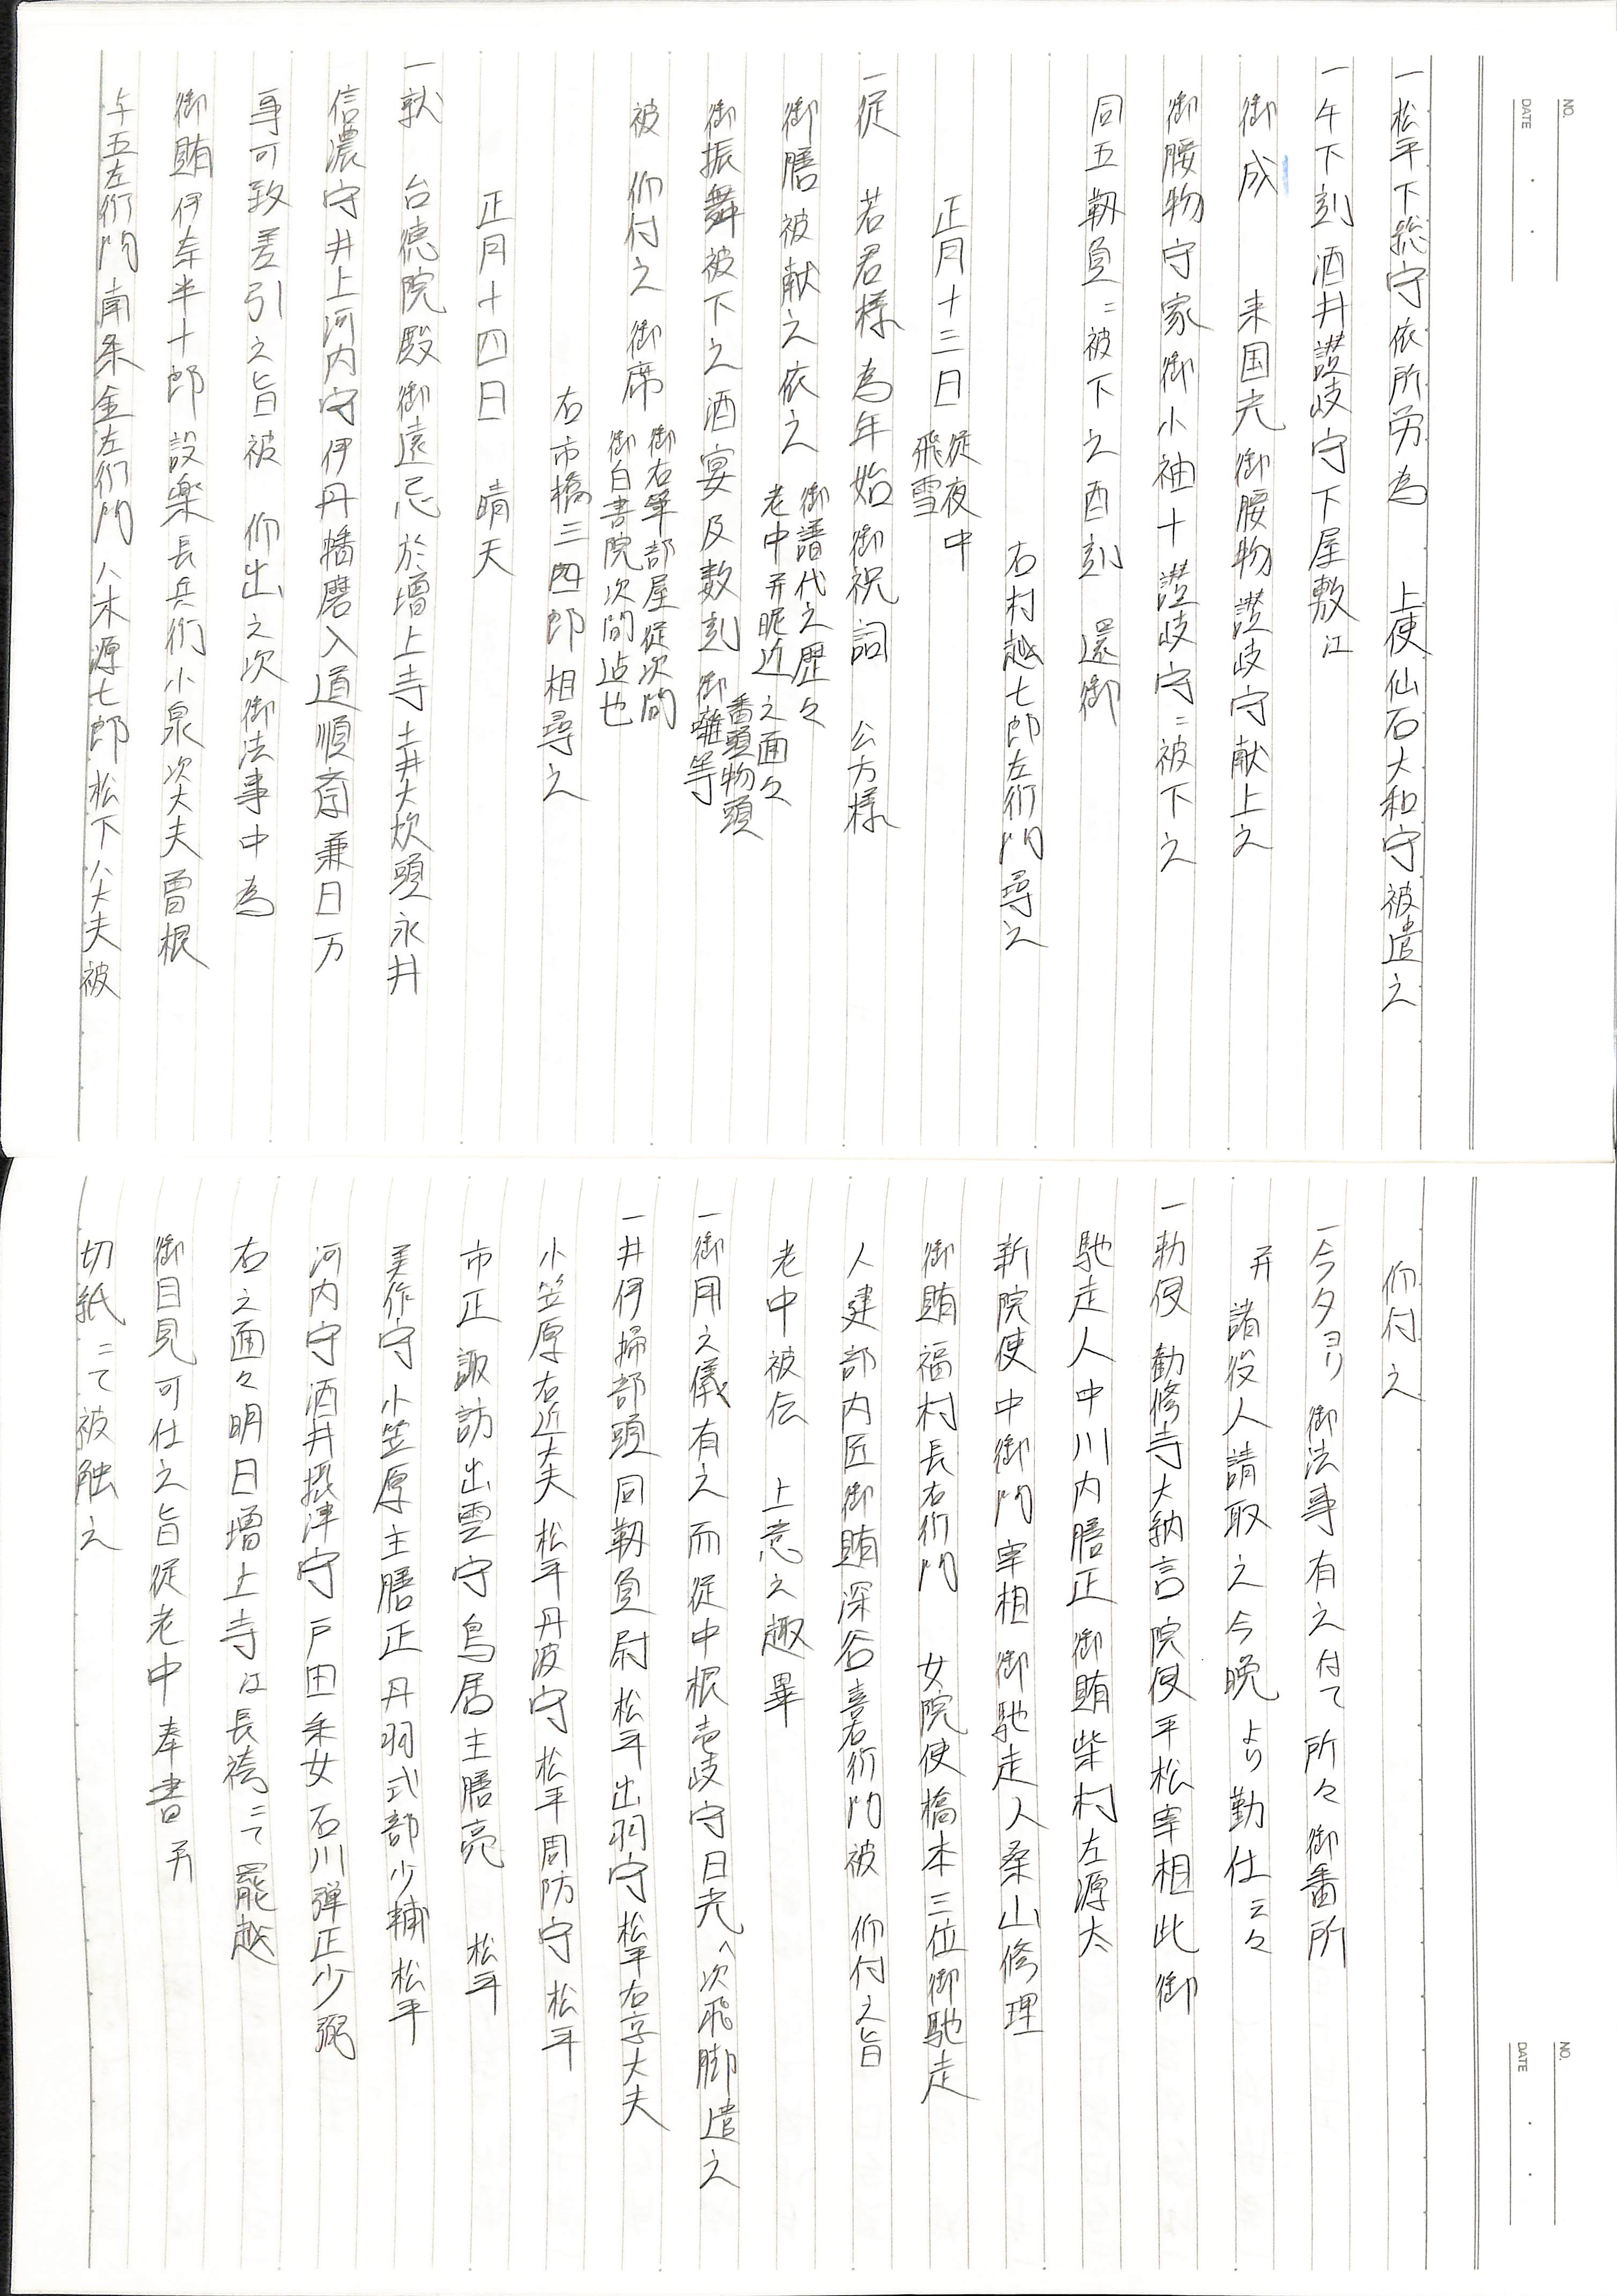 一松平下総守依所労為　上使仙石大和守被遣之
一午下刻酒井讃岐守下屋敷江
御成　来国光御腰物讃岐守献上之
御腰物守家御小袖十讃岐守ニ被下之
同五靱負ニ被下之酉刻　還御
右村越七郎左衛門尋之
正月十三日　従夜中
飛雪
一従　若君様為年始御祝詞　公方様
御膳被献之依之　御譜代之歴々
老中并昵近之面々
番頭物頭
御振舞被下之酒宴及数刻御囃等
被　仰付之御席　御右筆部屋従次間
御白書院次間迄也
右市橋三四郎相尋之
正月十四日　晴天
一就　台徳院殿御遠忌於増上寺土井大炊頭永井
信濃守井上河内守伊丹播磨入道順斎兼日万
事可致差引之旨被　仰出之次御法事中為
御賄伊奈半十郎設楽長兵衛小泉次大夫曽根
与五左衛門南条金左衛門八木源七郎松下八大夫被
仰付之
一今夕ヨリ御法事有之付て所々御番所
并諸役人請取之今晩より勤仕云々
一勅使勧修寺大納言院使平松宰相此御
馳走人中川内膳正御賄柴村左源太
新院使中御門宰相御馳走人桑山修理
御賄福村長右衛門　女院使橋本三位御馳走
人建部内匠御賄深谷喜右衛門被　仰付之旨
老中被伝　上意之趣畢
一御用之儀有之而従中根壱岐守日光へ次飛脚遣之
一井伊掃部頭同靱負尉松平出羽守松平右京大夫
小笠原右近大夫松平丹波守松平周防守松平
市正諏訪出雲守鳥居主膳亮　松平
美作守小笠原主膳正丹羽式部少輔松平
河内守酒井摂津守戸田采女石川弾正少弼
右之面々明日増上寺江長袴ニて罷越
御目見可仕之旨従老中奉書并
切紙ニて被触之
NO.
DATE
NO.
DATE